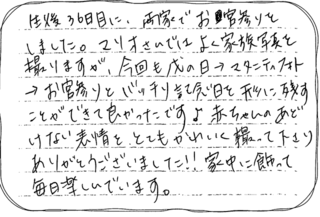 生後36日目に、両家でお宮参りを
しました。マリオさいではよく家族写真を
撮りますが、今回も戌の日→マタニティフォト
→お宮参りとバッチリ記念日を形に残す
ことができて良かったです♪赤ちゃんのあど
けない表情を、とてもかわいく撮って下さり
ありがとうございました!!家中に飾って
毎日楽しんでいます。